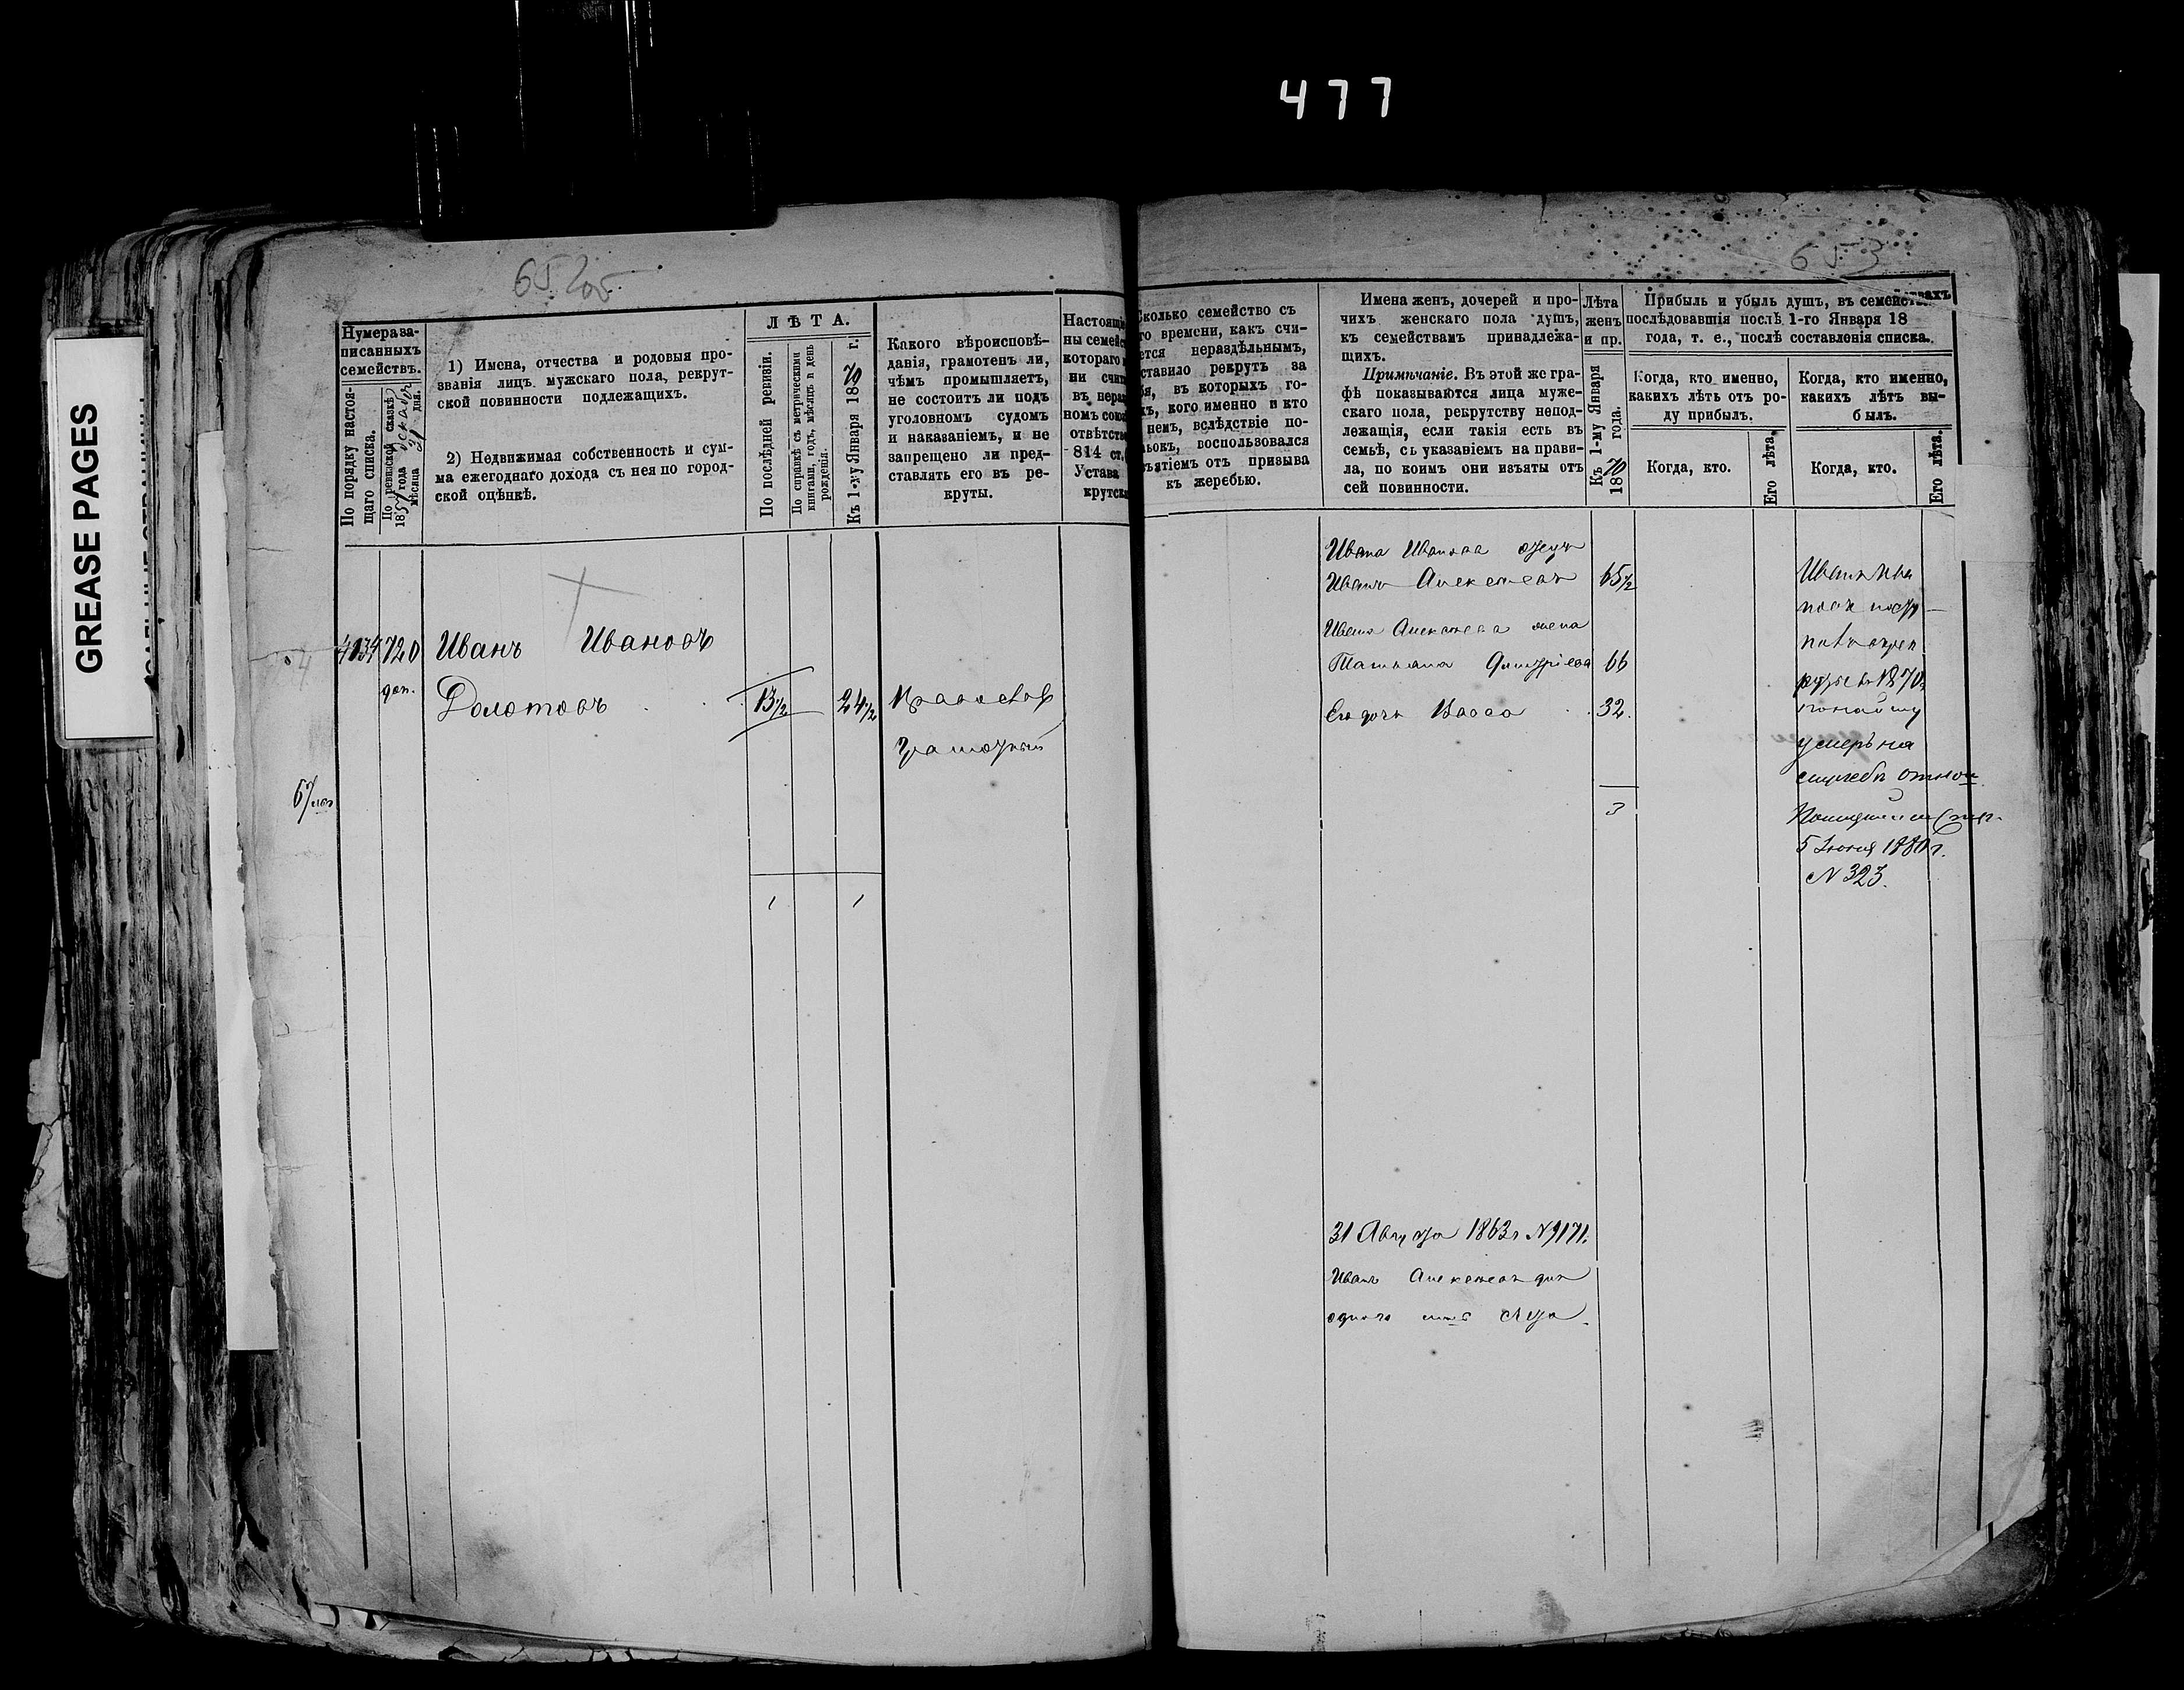 477
GREASE PAGES
652об
653
Нумера за-
писанныхъ
семействъ.
По порядку настоя-
щаго списка.
По ревизской сказкѣ
1857 года
мѣсяца 31 дня.
1) Имена, отчества и родовыя про-
званія лицъ мужскаго пола, рекрут-
ской повинности подлежащихъ.
2) Недвижимая собственность и сум-
ма ежегоднаго дохода съ нея по город-
ской оцѣнкѣ.
ЛѢТА.
По послѣдней ревизіи.
По справкѣ съ метрическими
книгами, годъ, мѣсяцъ и день
рожденія.
Къ 1-му Января 1870 г.
Какого вѣроисповѣ-
данія, грамотенъ ли,
чѣмъ промышляетъ,
не состоитъ ли подъ
уголовномъ судомъ
и наказаніемъ, и не
запрещено ли пред-
ставлять его въ ре-
круты.
Настоящі
ны семейс
котораго
ни счит
въ нераз
номъ союз
отвѣтств
814 ст.
Устава
крутск
Сколько семейство съ
го времени, какъ счи-
ется нераздѣльнымъ,
ставило рекрутъ за
бя, въ которыхъ го-
хъ, кого именно и кто
немъ, вслѣдствіе по-
ьокъ, воспользовался
ъятіемъ отъ призыва
къ жеребью.
Имена женъ, дочерей и про-
чихъ женскаго пола душъ,
къ семействамъ принадлежа-
щихъ.
Примѣчаніе. Въ этой же гра-
фѣ показываются лица муже-
скаго пола, рекрутству непод-
лежащія, если такія есть въ
семьѣ, съ указаніемъ на прави-
ла, по коимъ они изъяты отъ
сей повинности.
Лѣта
женъ
и пр.
Къ 1-му Января
1870 года.
Прибыль и убыль душъ, въ семействахъ
послѣдовавшія послѣ 1-го Января 18
года, т. е., послѣ составленія списка.
Когда, кто именно,
какихъ лѣтъ отъ ро-
ду прибылъ.
Когда, кто.
Его лѣта.
Когда, кто именно,
какихъ лѣтъ вы-
былъ.
Когда, кто.
Его лѣта.
4134 720 Иванъ Ивановъ
доп. Долотовъ 13½ 24½ Православ
грамотный
1 1
Ивана Иванова отецъ
Иванъ Алексѣевъ 65½
Ивана Алексѣева жена
Татьяна Дмитріева 66
Его дочь Васса 32.
3
Иванъ Ива
новъ посту
круты въ 1870 г.
по найму
умеръ на
службѣ
5 Іюня 1880 г.
N 323.
31 Августа 1863 г N 9171.
Иванъ Алексѣевъ